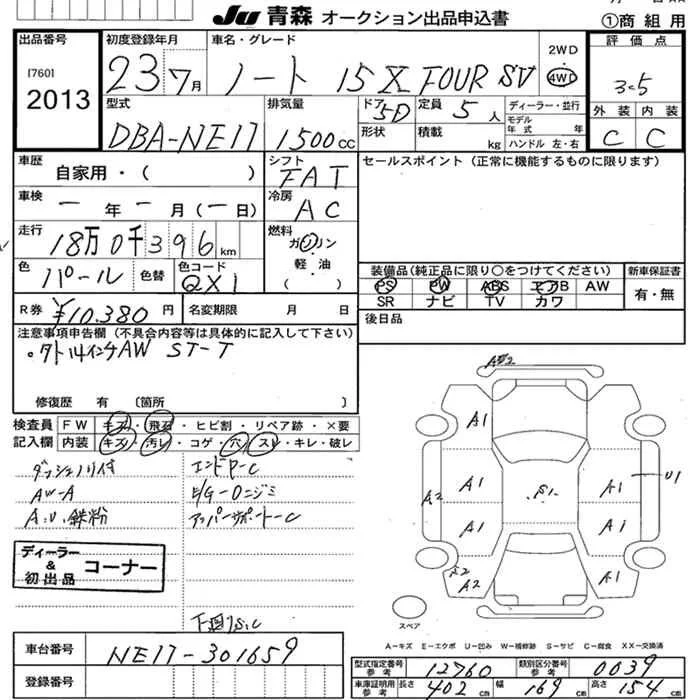 JU 青森 オークション出品申込書
①商組用
出品番号
[760]
2013
初度登録年月
23 7月
車名・グレード
ノート 15X FOUR SV
2WD
4WD
評価点
3.5
外装 内装
C C
型式
DBA-NE11
排気量
1500cc
ドア
5D
形状
定員 5人
積載 kg
ディーラー・並行
モデル年式 年
ハンドル 左・右
車歴
自家用・( )
シフト
FAT
セールスポイント(正常に機能するものに限ります)
車検
ー年ー月(ー日)
冷房
AC
走行
18万0千396km
燃料
ガソリン
軽油
( )
色
パール
色替
色コード
QX1
装備品(純正品に限り○をつけてください)
PS PW ABS エアB AW
SR ナビ TV カワ
新車保証書
有・無
R券 ¥10,380円
名変期限 月 日
後日品
注意事項申告欄(不具合内容等は具体的に記入して下さい)
AW ST-T
修復歴 有 〔箇所 〕
検査員記入欄
FW キズ・飛石・ヒビ割・リペア跡・×要
内装 キズ・汚レ・コゲ・穴・スレ・キレ・破レ
AW-A
A.U.鉄粉
エンドP-C
E/G-Oニジミ
アッパーサポート-C
ディーラー
&
初出品
コーナー
下廻りS.C
車台番号 NE11-301659
登録番号
A2
A1
A1 A1
A2 S1 U1
A1 A1
A2 A1
スペア
A-キズ E-エクボ U-凹み W-補修跡 S-サビ C-腐食 XX-交換済
型式指定番号 参考 12760
類別区分番号 参考 0039
車庫証明用 参考 長さ 402cm 幅 169cm 高さ 154cm